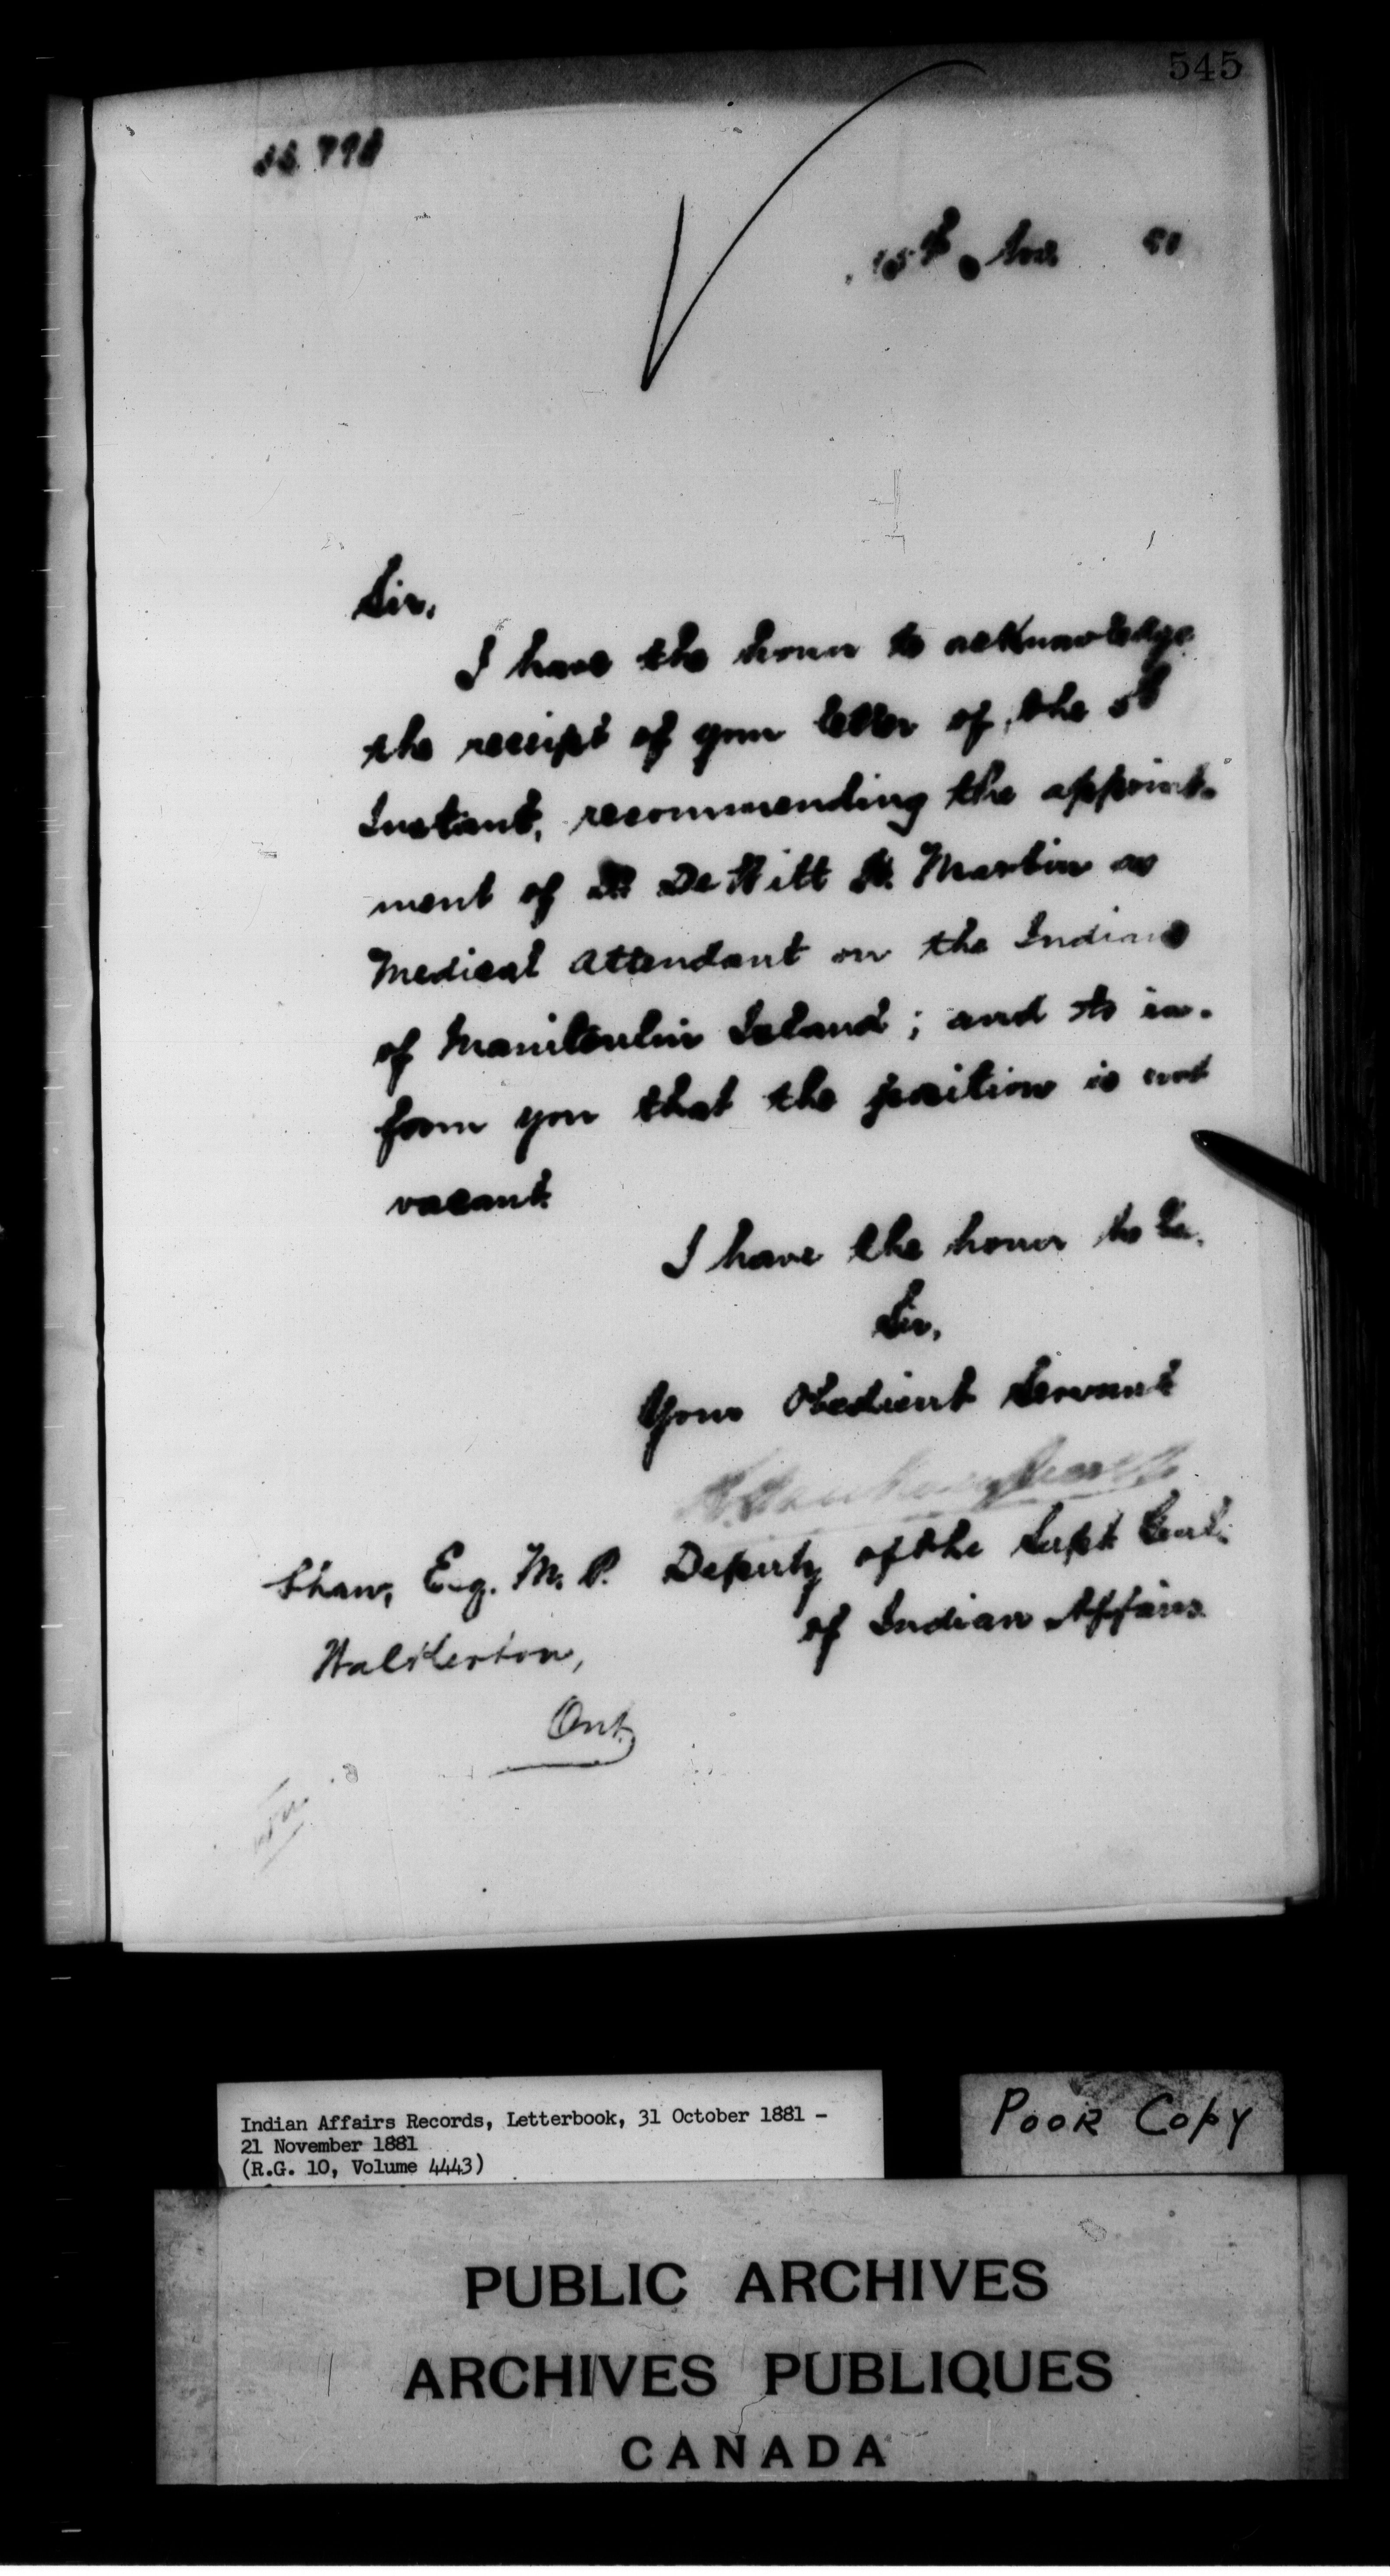 545
15th Nov
Sir,
I have the honor to acknowledge
the receipt of your letter of the
Instant, recommending the appoint-
ment of Dr DeWitt H. Martin as
Medical Attendant on the Indians
of Manitoulin Island; and to in-
form you that the position is not
vacant.
I have the honor to be,
Sir,
Your Obedient Servant
L. Vankoughnet
Deputy of the Supt. Genl.
of Indian Affairs
Shaw, Esq. M. P.
Walkerton,
Ont.
Indian Affairs Records, Letterbook, 31 October 1881 –
21 November 1881
(R.G. 10, Volume 4443)
POOR COPY
PUBLIC ARCHIVES
ARCHIVES PUBLIQUES
CANADA